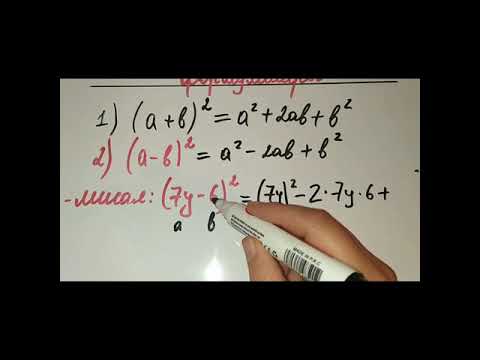 1) (a+b)² = a² + 2ab + b²
2) (a-b)² = a² - 2ab + b²
-мисал: (7y - 6)² = (7y)² - 2·7y·6 +
a b